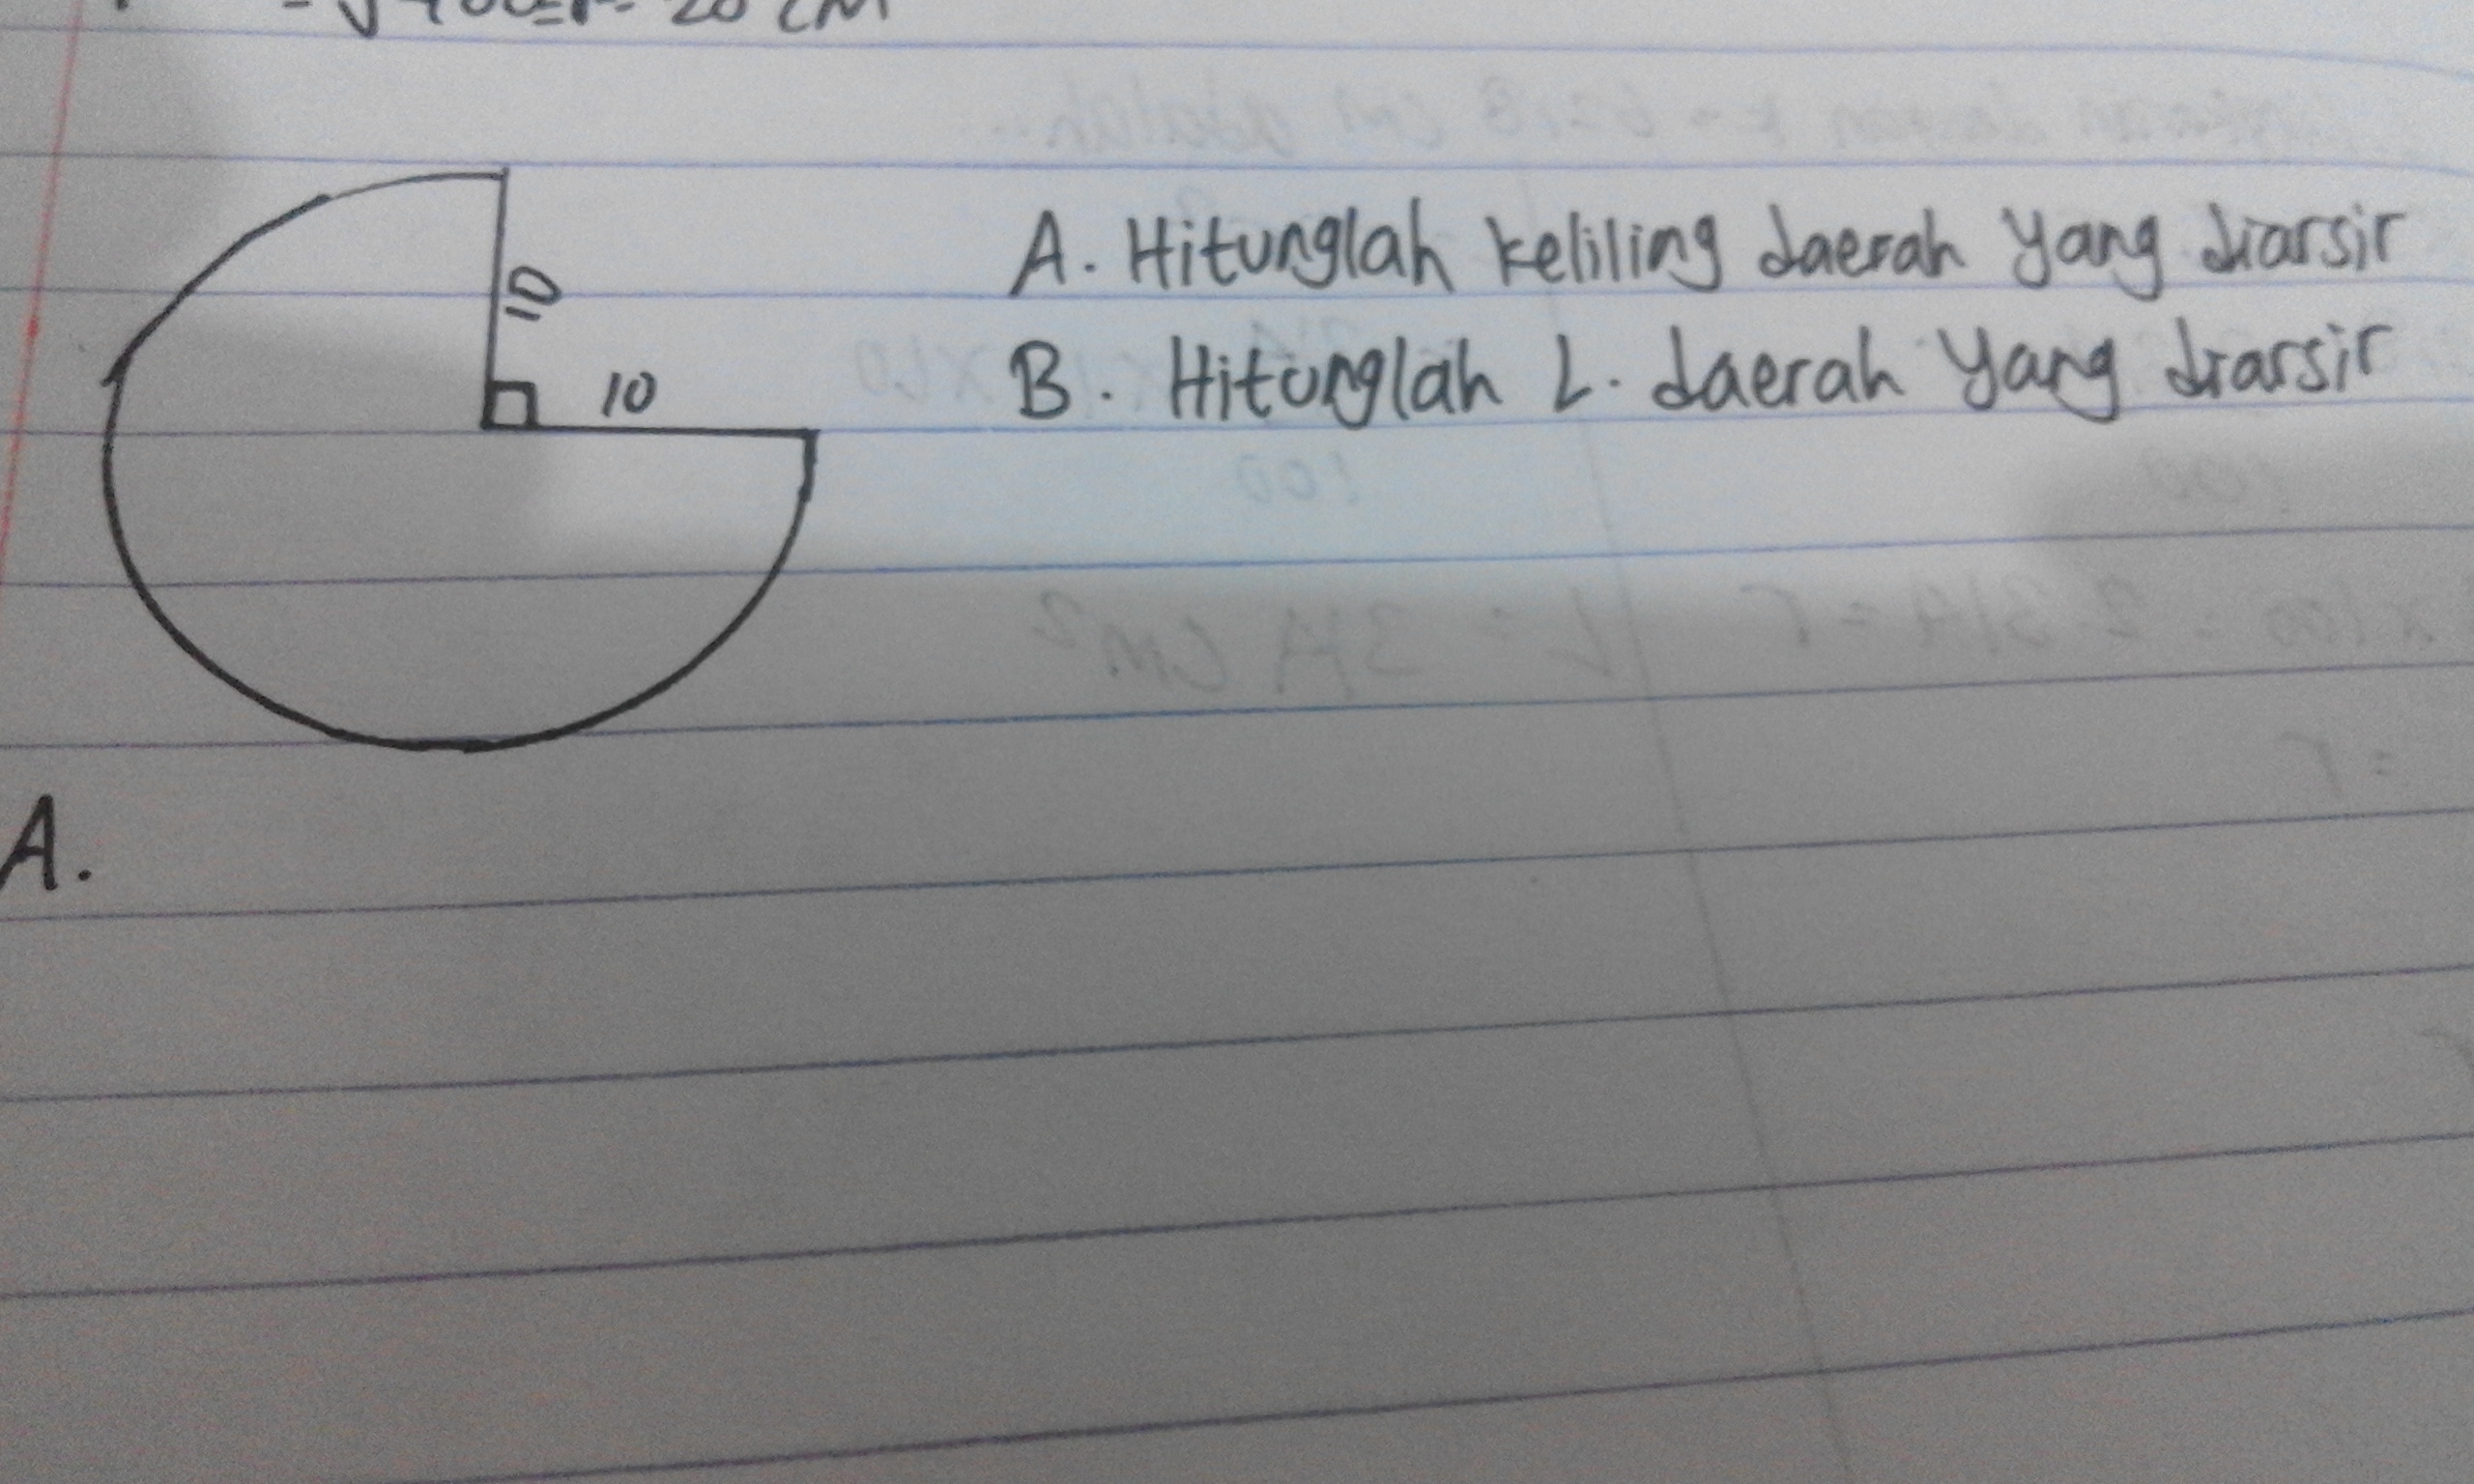 = √400 = r = 20 cm
10
10
A. Hitunglah keliling daerah yang diarsir
B. Hitunglah L. daerah yang diarsir
A.